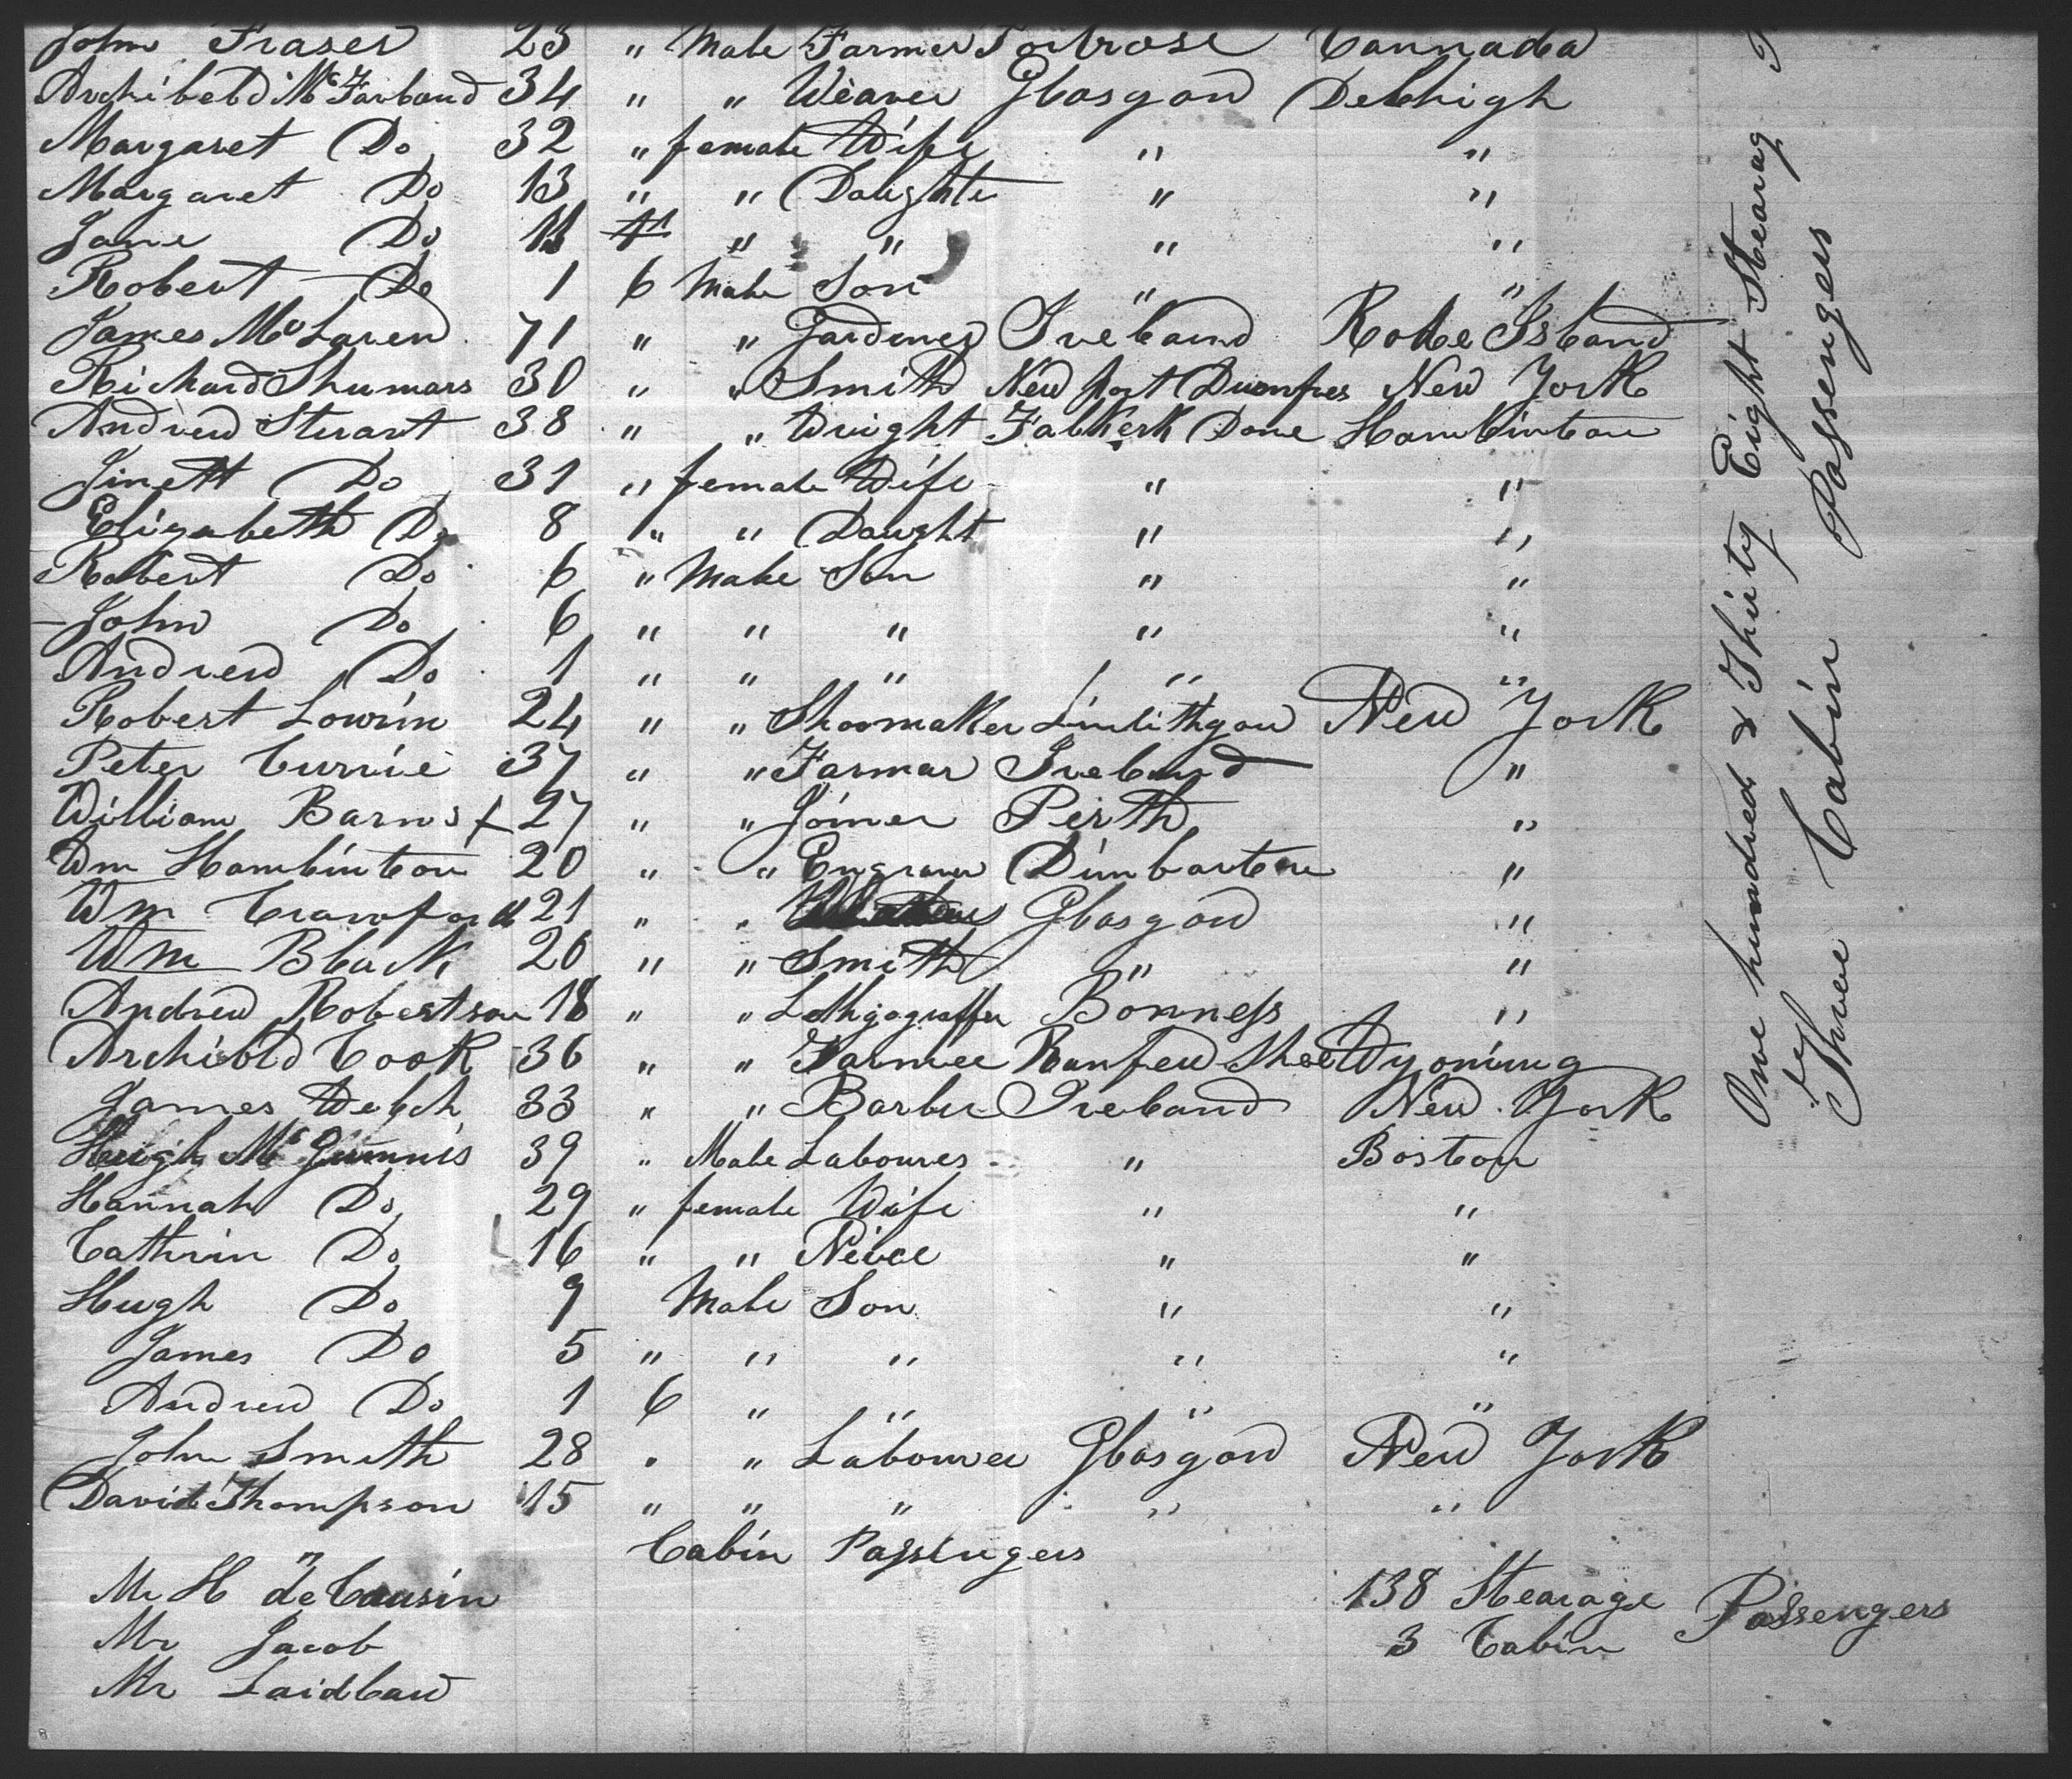 John Fraser 23 " Male Farmer Fortrose Cannada
Archibeld McFarland 34 " " Weaver Glasgow Delhigh
Margaret Do 32 " female Wife " "
Margaret Do 13 " " Daughte " "
Jane Do 11 " " " "
Robert Do 1 6 Male Son " "
James McLaren 71 " " Gardner Ireland Rode Island
Richard Shumars 30 " " Smith New port Dumfres New York
Andrew Stuart 38 " " Wright Falkerk Done Hamlinton
Jinett Do 31 " female Wife " "
Elizabeth Do 8 " " Daught " "
Robert Do 6 " Male Son " "
John Do 6 " " " " "
Andrew Do 1 " " " " "
Robert Lowrin 24 " " Shoomaker Linlithgow New York
Peter Currie 37 " " Farmar Ireland "
William Barns 27 " " Joiner Perth "
Wm Hamlinton 20 " " Engraver Dimbarton "
Wm Crawford 21 " " Glasgow "
Wm Black 20 " " Smith " "
Andrew Robertson 18 " " Lethgograffer Bonness "
Archibold Cook 36 " " Farmer Ranfew Shee Wyoming
James Welch 33 " " Barber Ireland New York
Hugh McGinnis 39 " Male Labourer " Boston
Hannah Do 29 " female Wife " "
Cathrin Do 16 " " Neice " "
Hugh Do 9 Male Son " "
James Do 5 " " " " "
Andrew Do 1 6 " " " "
John Smith 28 " " Labourer Glasgow New York
David Thompson 15 " " " " "
Cabin Passengers
Mr H de Cousin
Mr Jacob
Mr Laidlaw
138 Stearage
3 Cabin Passengers
One hundred & Thirty Eight Stearag
Three Cabin Passengers